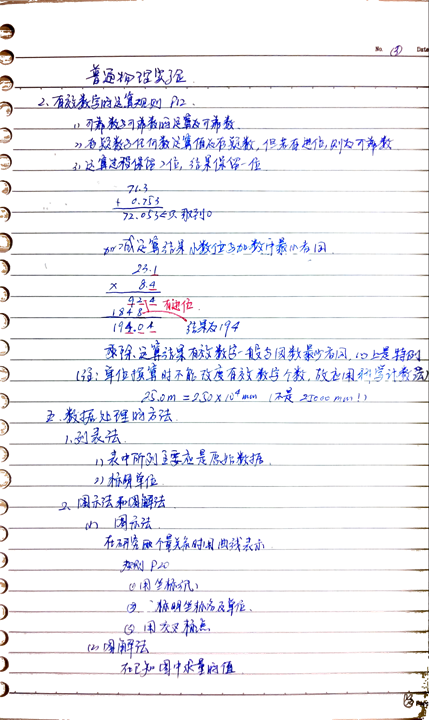 No. ③ Date
普通物理实验
2. 有效数字的运算规则 P12.
1) 可靠数与可靠数的运算为可靠数
2) 存疑数与任何数运算值为存疑数, 但若有进位, 则为可靠数
3) 运算过程保留2位, 结果保留一位
71.3
+ 0.753
72.053 ← 只取到0
加减运算结果小数位与加数中最少者同
23.1
× 8.4
924 有进位
1848
194.04 结果为194
乘除运算结果有效数字一般与因数最少者同, 以上是特例
(注: 单位换算时不能改变有效数字个数, 故应用科学计数法)
25.0m = 2.50×10⁴mm (不是25000mm!)
五. 数据处理的方法
1. 列表法
1) 表中所列主要应是原始数据
2) 标明单位
2. 图示法和图解法
(1) 图示法
在研究两个量关系时用曲线表示
规则 P20
① 用坐标纸
② 标明坐标名及单位
③ 用大叉标点
(2) 图解法
在已知图中求量的值